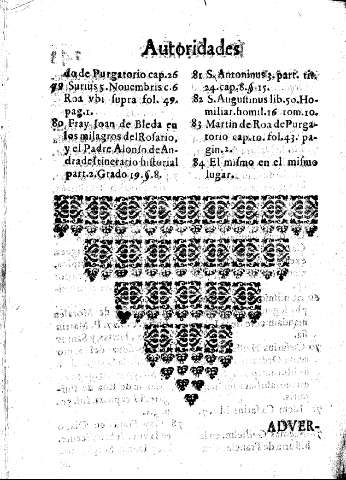 Autoridades
do de Purgatorio cap.26
79 Surius 5. Nouembris c.6
Roa vbi supra fol. 49.
pag.1.
80 Fray Ioan de Bleda en
los milagros del Rosario,
y el Padre Alonso de An-
drade Itinerario historial
part.2. Grado 19.§.8.
81 S. Antoninus 3. part. tit.
24. cap.8.§.15.
82 S. Augustinus lib.50. Ho-
miliar. homil.16 tom.10.
83 Martin de Roa de Purga-
torio cap.10. fol.43. pa-
gin.2.
84 El mismo en el mismo
lugar.
ADVER-